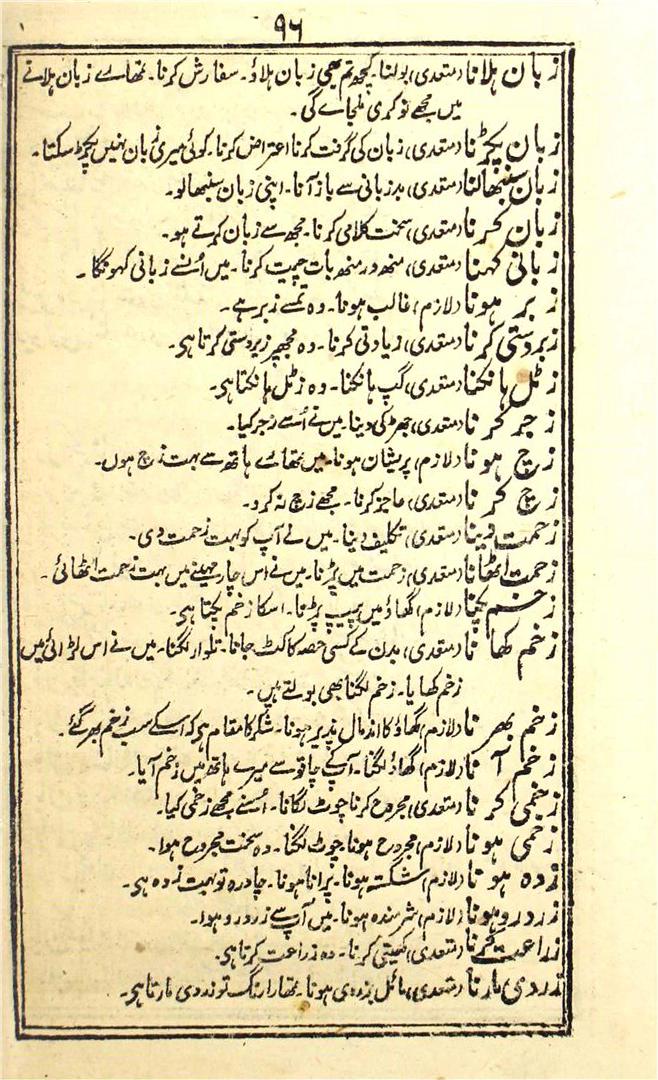 ۹۶
زبان ہلانا (متعدی) بولنا۔ کچھ تم بھی زبان ہلاؤ۔ سفارش کرنا۔ تمھارے زبان ہلانے
میں مجھے نوکری ملجاے گی۔
زبان پکڑنا (متعدی) زبان کی گرفت کرنا اعتراض کرنا۔ کوئی میری زبان نہیں پکڑ سکتا۔
زبان سنبھالنا (متعدی) بدزبانی سے باز آنا۔ اپنی زبان سنبھالو۔
زبان کرنا (متعدی) سخت کلامی کرنا۔ مجھ سے زبان کرتے ہو۔
زبانی کہنا (متعدی) منھ در منھ بات چیت کرنا۔ میں اُنسے زبانی کہونگا۔
زبر ہونا (لازم) غالب ہونا۔ وہ تمسے زبر ہے۔
زبردستی کرنا (متعدی) زیادتی کرنا۔ وہ مجھپر زبردستی کرتا ہی۔
زٹل ہانکنا (متعدی) گپ ہانکنا۔ وہ زٹل ہانکتا ہی۔
زجر کرنا (متعدی) جھڑکی دینا۔ میں نے اُسے زجر کیا۔
زچ ہونا (لازم) پریشان ہونا۔ میں تمھارے ہاتھ سے بہت زچ ہوں۔
زچ کرنا (متعدی) عاجز کرنا۔ مجھے زچ نہ کرو۔
زحمت دینا (متعدی) تکلیف دینا۔ میں نے آپ کو بہت زحمت دی۔
زحمت اٹھانا (متعدی) زحمت میں پڑنا۔ میں نے اس چار مہینے میں بہت زحمت اٹھائی۔
زخم پکنا (لازم) گھاؤ میں پیپ پڑنا۔ اسکا زخم پکتا ہی۔
زخم کھانا (متعدی) بدن کے کسی حصہ کا کٹ جانا۔ تلوار لگنا۔ میں نے اس لڑائی میں
زخم کھایا۔ زخم لگنا بھی بولتے ہیں۔
زخم بھرنا (لازم) گھاؤ کا اندمال پذیر ہونا۔ شکر کا مقام ہی کہ اسکے سب زخم بھر گئے۔
زخم آنا (لازم) گھاؤ لگنا۔ آپکے چاقو سے میرے ہاتھ میں زخم آیا۔
زخمی کرنا (متعدی) مجروح کرنا چوٹ لگانا۔ اُسنے مجھے زخمی کیا۔
زخمی ہونا (لازم) مجروح ہونا چوٹ لگنا۔ وہ سخت مجروح ہوا۔
زدہ ہونا (لازم) شکستہ ہونا۔ پرانا ہونا۔ چادرہ تو بہت زدہ ہی۔
زردرو ہونا (لازم) شرمندہ ہونا۔ میں آپ سے زردرو ہوا۔
زراعت کرنا (متعدی) کھیتی کرنا۔ وہ زراعت کرتا ہی۔
زردی مارنا (متعدی) مائل بزردی ہونا۔ تمھارا رنگ تو زردی مارتا ہی۔